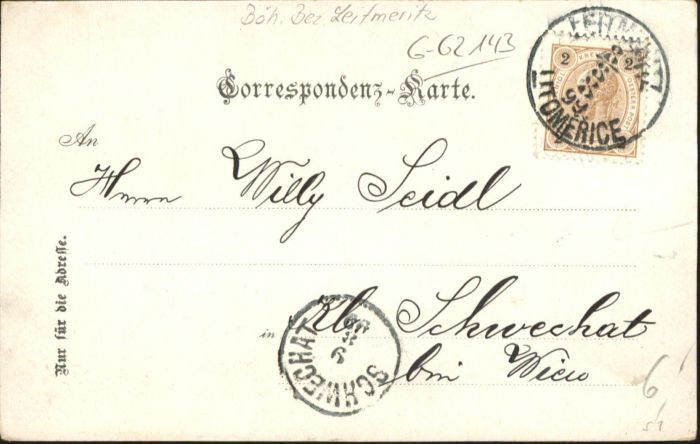 Böh. Bez. Leitmeritz
G-62143
Correspondenz-Karte.
2 2
LITOMĚRICE
99
An
Herrn Willy Seidl
Nur für die Adresse.
in Kl. Schwechat
bei Wien
SCHWECHAT
6